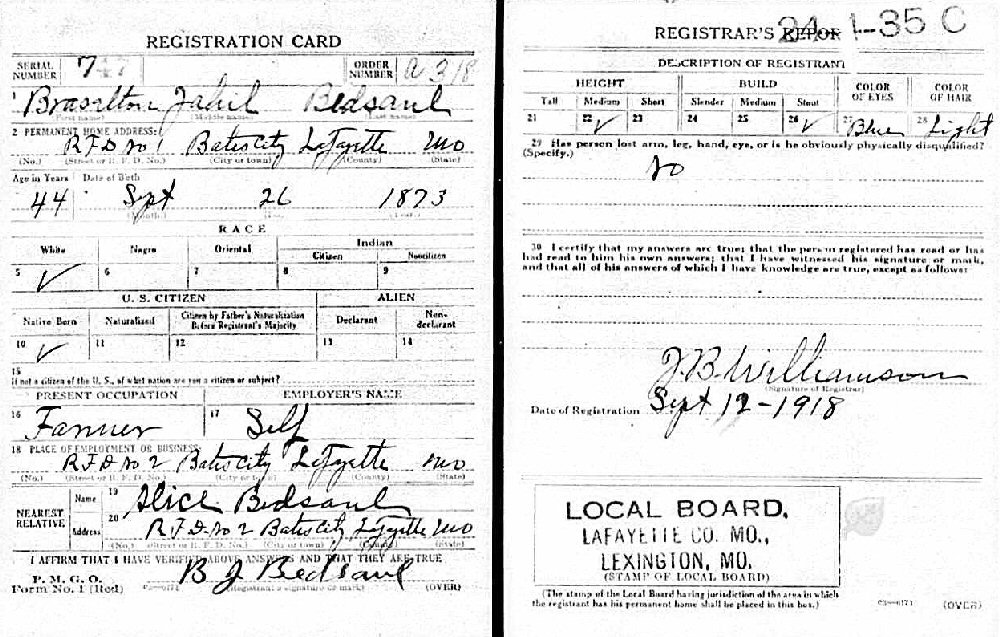 REGISTRATION CARD
SERIAL NUMBER 747 ORDER NUMBER A318
1 Braselton Jahil Bedsaul
(First name) (Middle name) (Last name)
2 PERMANENT HOME ADDRESS:
R.F.D. No 1 Bates City Lafayette Mo
(No.) (Street or R. F. D. No.) (City or town) (County) (State)
Age in Years Date of Birth
44 Sept 26 1873
(Month) (Day) (Year)
RACE
White Negro Oriental Indian
Citizen Noncitizen
5 ✓ 6 7 8 9
U. S. CITIZEN ALIEN
Native Born Naturalized Citizen by Father's Naturalization Before Registrant's Majority Declarant Non-declarant
10 ✓ 11 12 13 14
15
If not a citizen of the U. S., of what nation are you a citizen or subject?
PRESENT OCCUPATION EMPLOYER'S NAME
16 Farmer 17 Self
18 PLACE OF EMPLOYMENT OR BUSINESS:
R.F.D. No 2 Bates City Lafayette Mo
(No.) (Street or R. F. D. No.) (City or town) (County) (State)
NEAREST RELATIVE
Name 19 Alice Bedsaul
Address 20 R.F.D. No 2 Bates City Lafayette Mo
(No.) (Street or R. F. D. No.) (City or town) (County) (State)
I AFFIRM THAT I HAVE VERIFIED ABOVE ANSWERS AND THAT THEY ARE TRUE
P. M. G. O.
Form No. 1 (Red) B J Bedsaul
(Registrant's signature or mark) (OVER)
REGISTRAR'S REPORT 24-1-35 C
DESCRIPTION OF REGISTRANT
HEIGHT BUILD COLOR OF EYES COLOR OF HAIR
Tall Medium Short Slender Medium Stout
21 22 ✓ 23 24 25 26 ✓ 27 Blue 28 Light
29 Has person lost arm, leg, hand, eye, or is he obviously physically disqualified?
(Specify.)
No
30 I certify that my answers are true; that the person registered has read or has
had read to him his own answers; that I have witnessed his signature or mark,
and that all of his answers of which I have knowledge are true, except as follows:
J.B. Williamson
(Signature of Registrar)
Date of Registration Sept 12-1918
LOCAL BOARD,
LAFAYETTE CO. MO.,
LEXINGTON, MO.
(STAMP OF LOCAL BOARD)
(The stamp of the Local Board having jurisdiction of the area in which
the registrant has his permanent home shall be placed in this box.)
(OVER)